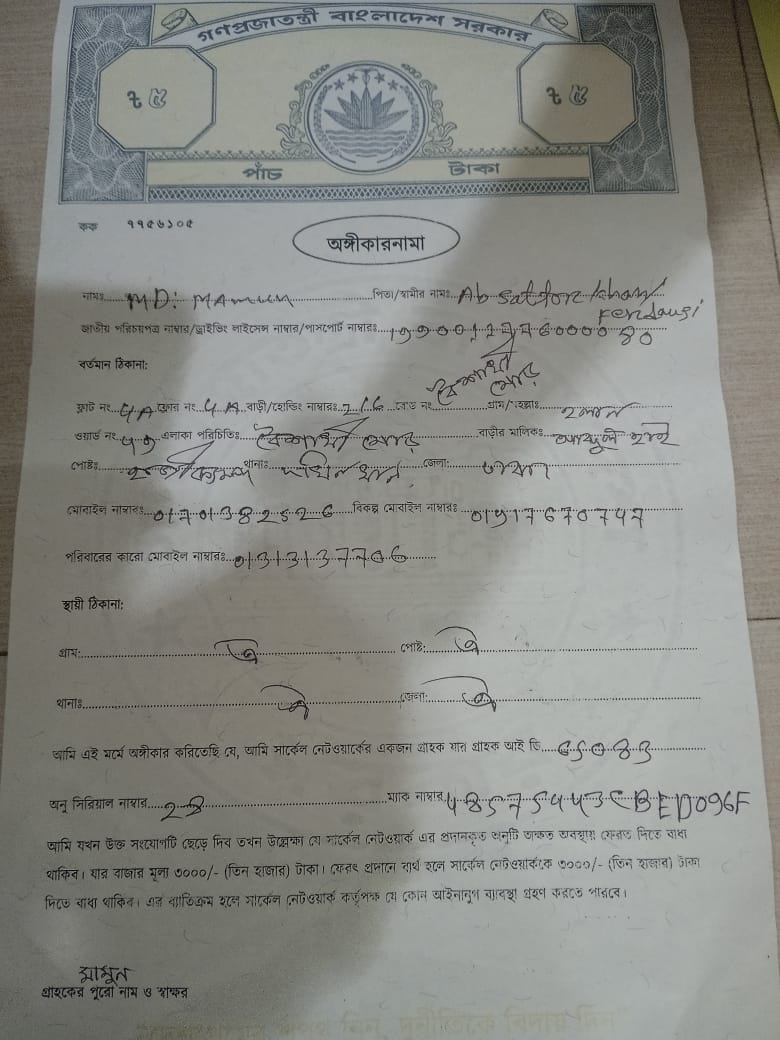 গণপ্রজাতন্ত্রী বাংলাদেশ সরকার
৳ ৫ ৳ ৫
পাঁচ টাকা
কক ৭৭৫৬১০৫
অঙ্গীকারনামা
নামঃ MD: MAmun পিতা/স্বামীর নামঃ Ab sattor khan/
Ferdausi
জাতীয় পরিচয়পত্র নাম্বার/ড্রাইভিং লাইসেন্স নাম্বার/পাসপোর্ট নাম্বারঃ
বর্তমান ঠিকানা:
বৈশাখী মোড়
ফ্লাট নং 4A ফ্লোর নং 4A বাড়ী/হোল্ডিং নাম্বারঃ রোড নং গ্রাম/মহল্লাঃ
ওয়ার্ড নং এলাকা পরিচিতিঃ বৈশাখী মোড় বাড়ীর মালিকঃ হাই
পোষ্টঃ থানাঃ জেলা: ঢাকা
মোবাইল নাম্বারঃ 01701382526 বিকল্প মোবাইল নাম্বারঃ 01917670747
পরিবারের কারো মোবাইল নাম্বারঃ 013137706
স্থায়ী ঠিকানা:
গ্রাম: ঐ পোষ্ট: ঐ
থানাঃ ঐ জেলা: ঐ
আমি এই মর্মে অঙ্গীকার করিতেছি যে, আমি সার্কেল নেটওয়ার্কের একজন গ্রাহক যার গ্রাহক আই ডি
অনু সিরিয়াল নাম্বার ম্যাক নাম্বার 48575443CBED096F
আমি যখন উক্ত সংযোগটি ছেড়ে দিব তখন উল্লেক্ষ্য যে সার্কেল নেটওয়ার্ক এর প্রদানকৃত অনুটি অক্ষত অবস্থায় ফেরত দিতে বাধ্য
থাকিব। যার বাজার মূল্য ৩০০০/- (তিন হাজার) টাকা। ফেরৎ প্রদানে ব্যর্থ হলে সার্কেল নেটওয়ার্ককে ৩০০০/- (তিন হাজার) টাকা
দিতে বাধ্য থাকিব। এর ব্যতিক্রম হলে সার্কেল নেটওয়ার্ক কর্তৃপক্ষ যে কোন আইনানুগ ব্যবস্থা গ্রহণ করতে পারবে।
মামুন
গ্রাহকের পুরো নাম ও স্বাক্ষর